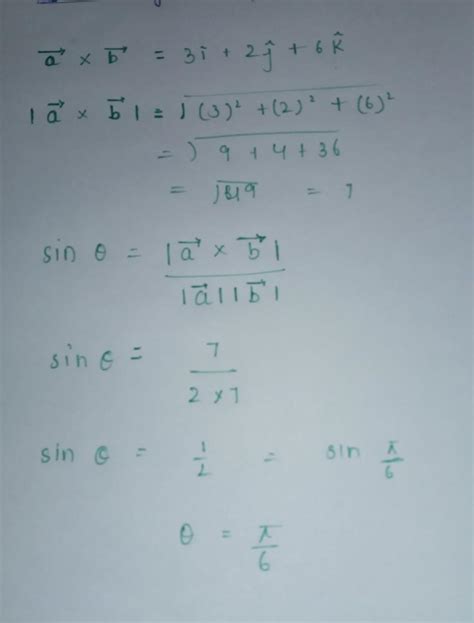 a⃗ × b⃗ = 3î + 2ĵ + 6k̂
|a⃗ × b⃗| = √(3)² + (2)² + (6)²
= √9 + 4 + 36
= √49 = 7
sin θ = |a⃗ × b⃗| / |a⃗||b⃗|
sin θ = 7 / 2 × 7
sin θ = 1/2 = sin π/6
θ = π/6